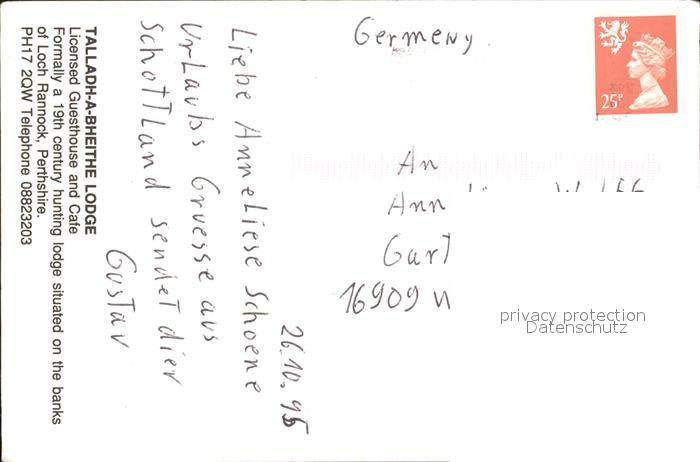 TALLADH-A-BHEITHE LODGE
Licensed Guesthouse and Cafe
Formally a 19th century hunting lodge situated on the banks
of Loch Rannock, Perthshire.
PH17 2QW Telephone 08823203
26.10.95
Liebe AnneLiese Schoene
UrLaubs Gruesse aus
SchoTTLand sendet dier
Gustav
Germeny.
25P
An
Ann
Gart
16909 W
privacy protection
Datenschutz